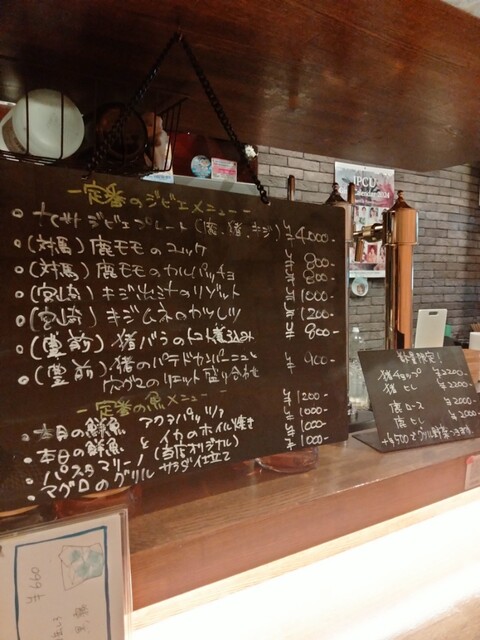 一定番のジビエメニュー
・ジビエプレート(鹿、猪、キジ) ¥4000-
・(対馬)鹿モモの ¥800-
・(対馬)鹿モモのカルパッチョ ¥800-
・(宮崎)キジのリゾット ¥1000-
・(宮崎)キジムネのカツレツ ¥1200-
・(豊前)猪バラのトマト煮込み ¥800-
・(豊前)猪のパテドカンパーニュと
のリエット盛り合わせ ¥900-
一定番の魚メニュー
・本日の鮮魚 アクアパッツァ ¥1200-
・本日の鮮魚とイカのホイル焼き ¥1000-
・パスタマリーノ(当店オリジナル) ¥1000-
・マグロのグリル サラダ仕立て ¥1000-
数量限定!
猪 ¥2200-
猪 ヒレ ¥2200-
鹿 ロース ¥2000-
鹿 ヒレ ¥2000-
+¥500で野菜
IPCU
Calendar 2024
¥660